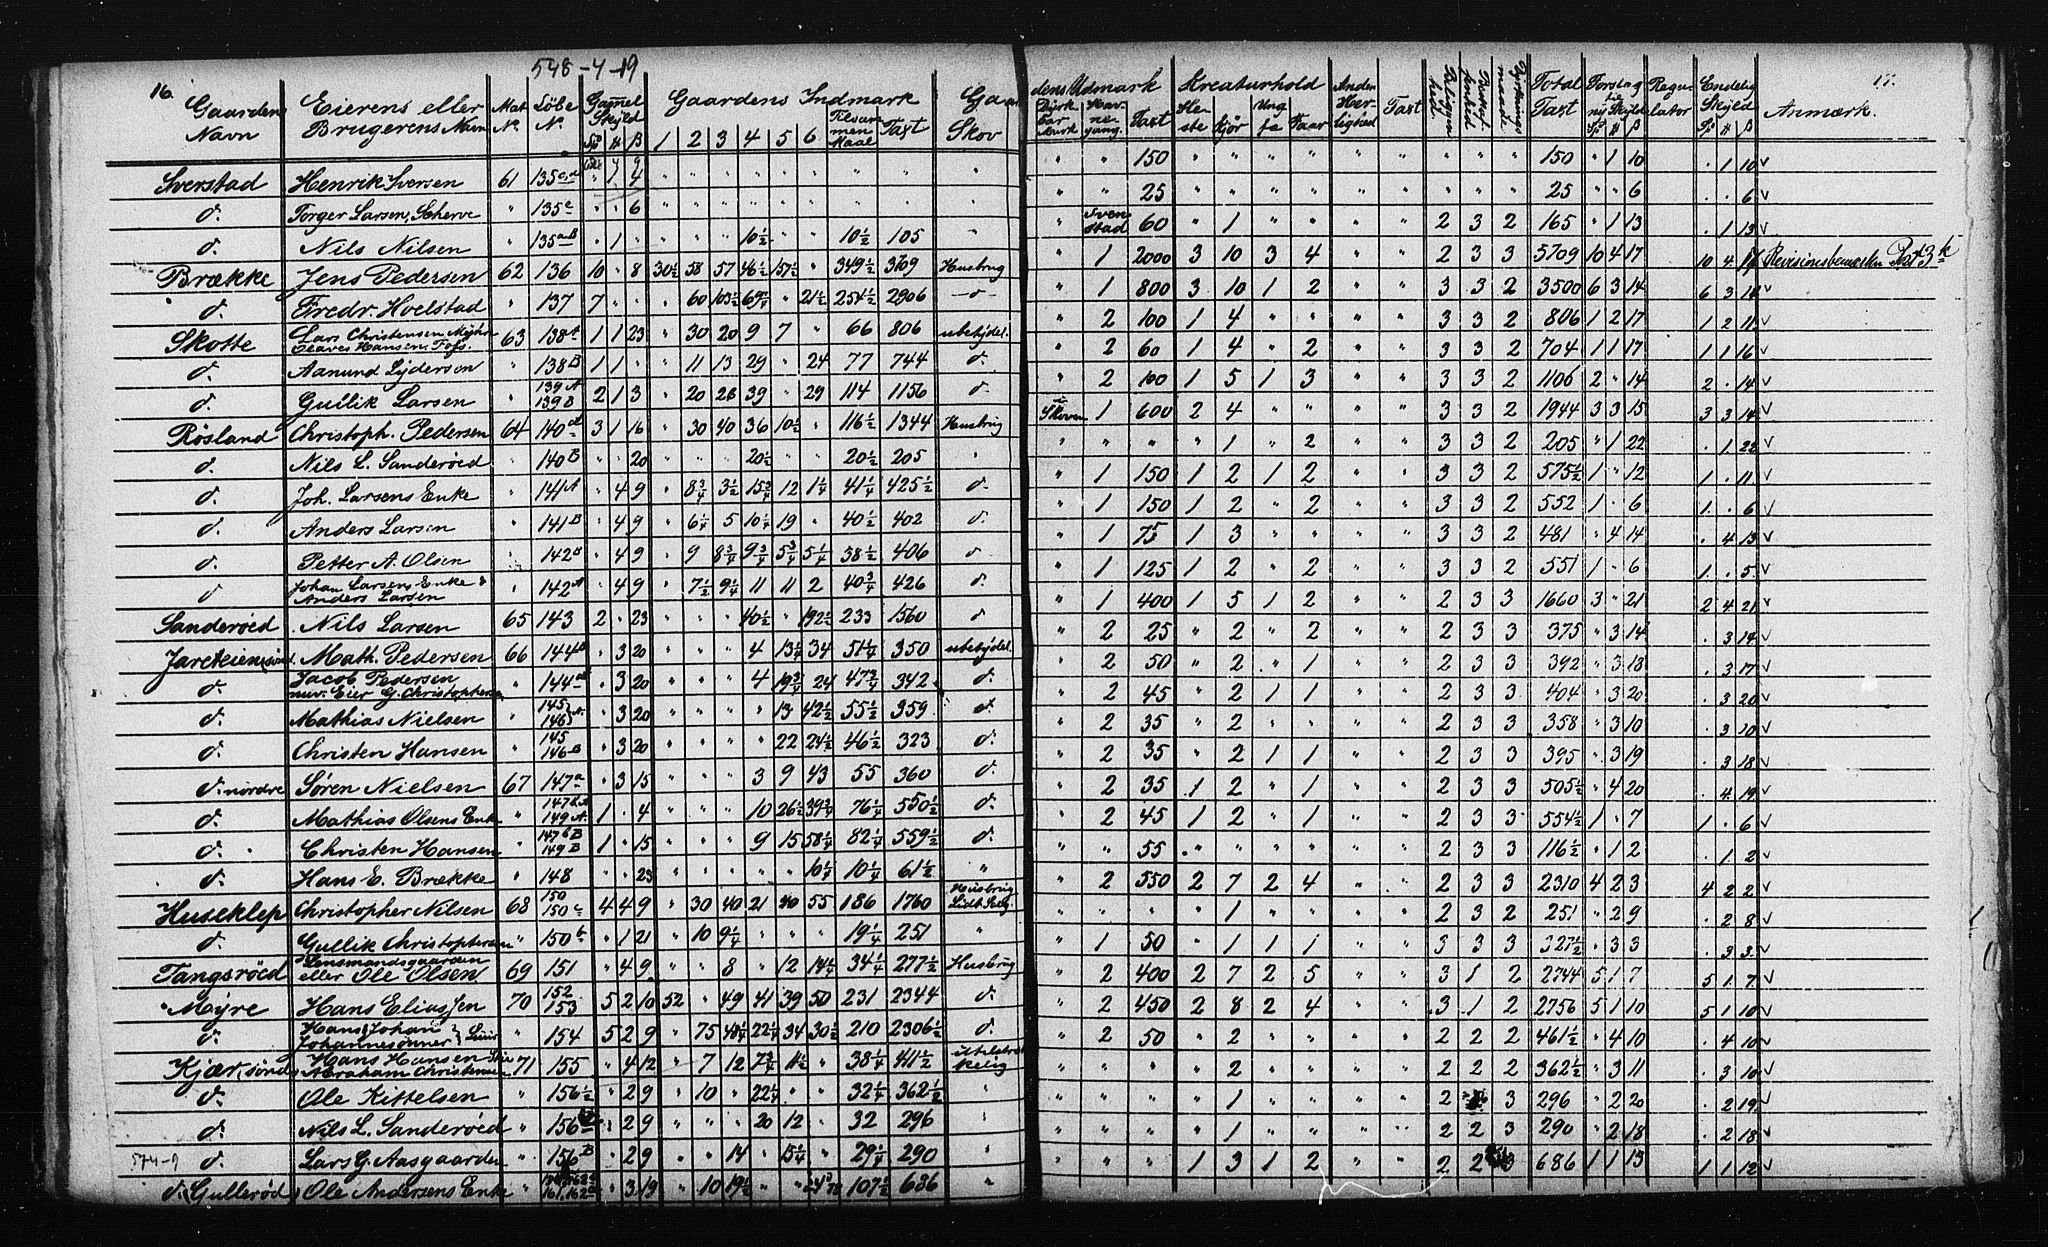 548-4-19
16.
Gaardens Navn | Eierens eller Brugerens Navn | Mat. N. | Løbe N. | Gammel Skyld | Gaardens Indmark 1 2 3 4 5 6 Tilsammen Maal Taxt | Skov
Sverstad | Henrik Iversen | 61 | 135 | " | "
d. | Torger Larsen, | " | 135c | " " 6 | " " " " " " " "
d. | Nils Nilsen | " | 135 | " 1 " | " " " 10½ " " 10½ 105 | "
Brække | Jens Pedersen | 62 | 136 | 10 " 8 | 30½ 58 57 46½ 157½ " 349½ 3709 | Husbrug
d. | Fredr. Hoelstad | " | 137 | 7 " " | " 60 103½ 69¾ " 21½ 254½ 2906 | -d-
Skotte | Lars Christensen | 63 | 138A | 1 1 23 | " 30 20 9 7 " 66 806 | ubetydel.
d. | Aanund | " | 138B | 1 1 " | " 11 13 29 " 24 77 744 | d.
d. | Gullik Larsen | " | 139A 139B | 2 1 3 | " 20 26 39 " 29 114 1156 | d.
Røsland | Christoph. Pedersen | 64 | 140a | 3 1 16 | " 30 40 36 10½ " 116½ 1344 | Husbrug
d. | Nils L. Sanderøed | " | 140B | " " 20 | " " " 20½ " " 20½ 205 | "
d. | Joh. Larsens Enke | " | 141A | " 4 9 | " 8¾ 3½ 15¾ 12 1¼ 41¼ 425½ | d.
d. | Anders Larsen | " | 141B | " 4 9 | " 6¼ 5 10¼ 19 " 40½ 402 | d.
d. | Petter A. Olsen | " | 142B | " 4 9 | " 9 8¾ 9¾ 5¾ 5¼ 38½ 406 | d.
d | Johan Larsens Enke & Anders Larsen | " | 142A | " 4 9 | " 7½ 9¼ 11 11 2 40¾ 426 | d.
Sanderøed | Nils Larsen | 65 | 143 | 2 " 23 | " " " 40½ " 192½ 233 1560 | d
Jarekeien, sønd. | Math. Pedersen | 66 | 144 | " 3 20 | " " " 4 13¼ 34 51¼ 350 | ubetydel.
d. | Jacob Pedersen nuv. Eier G. Christophersen | " | 144 | " 3 20 | " " " 4 19¾ 24 47¾ 342 | d.
d. | Mathias Nielsen | " | 145 146 A. | " 3 20 | " " " " 13 42½ 55½ 359 | d.
d. | Christen Hansen | " | 145 146B | " 3 20 | " " " " 22 24½ 46½ 323 | d.
d. nordre | Søren Nielsen | 67 | 147a | " 3 15 | " " " 3 9 43 55 360 | d.
d. | Mathias Olsens Enke | " | 147 149A. | 1 " 4 | " " " 10 26½ 39¾ 76¼ 550½ | d.
d. | Christen Hansen | " | 147bB 149B | 1 " 15 | " " " 9 15 58¼ 82¼ 559½ | d.
d. | Hans E. Brække | " | 148 | " " 23 | " " " " " 10¼ 10¼ 61½ | "
Huseklep | Christopher Nilsen | 68 | 150 150c | 4 4 9 | " 30 40 21 40 55 186 1760 | Husbrug Lidt Salg.
d. | Gullik Christophersen | " | 150b | " 1 21 | " 10 9¼ " " " 19¼ 251 | "
Tangsrøed | Lensmandsgaarden eller Ole Olsen | 69 | 151 | " 4 9 | " " 8 " 12 14¼ 34¼ 277½ | Husbrug
Møyre | Hans Eliassen | 70 | 152 153 | 5 2 10 | 52 " 49 41 39 50 231 2344 | d.
d. | Hans & Johan Johannesønner | " | 154 | 5 2 9 | " 75 48¼ 22¼ 34 30½ 210 2306½ | d.
Kjær, sønd. | Hans Hansen Abraham Christensen | 71 | 155 | " 4 12 | " 7 12 7¾ 11½ " 38¼ 411½ | utilstrækkelig
d. | Ole Kittelsen | " | 156½ | " 2 9 | " 10 " 22¼ " " 32¼ 362½ | "
d. | Nils L. Sanderøed | " | 156 | " 2 9 | " " " 20 12 " 32 296 | "
574-9 d. | Lars G. Aasgaarden | " | 156B | " 2 9 | " " 14 " 15¼ " 29¼ 290 | "
d. Gullerød | Ole Andersens Enke | " | 161, 162 | " 3 19 | " 10 19½ " " 107½ 686 | "
17.
Gaardens Udmark: Dyrkbar Mark, Havnegang, Taxt | Kreaturhold: Heste, Kjør, Ungfæ, Faar | Anden Herlighed | Taxt | Beliggenhed | Beskaffenhed | Dyrkningsmaade | Total Taxt | Forslag til ny Skyld | Regulator | Endelig Skyld | Anmærk.
" " 150 | " " " " | " | " | " " " | 150 | " 1 10 | . 1 10 v
" " 25 | " " " " | " | " | " " " | 25 | " " 6 | . . 6 v
" Svenstad 60 | " 1 " " | " | " | 2 3 2 | 165 | " 1 13 | . 1 13 v
" 1 2000 | 3 10 3 4 | " | " | 2 3 3 | 5709 | 10 4 17 | 10 4 17 | Revisionsbemærkn. Post 3
" 1 800 | 3 10 1 2 | " | " | 3 3 2 | 3500 | 6 3 14 | 6 3 14 v
" 2 100 | 1 4 " " | " | " | 3 3 2 | 806 | 1 2 17 | 1 2 11 v
" 2 60 | 1 4 " 2 | " | " | 3 3 2 | 704 | 1 1 17 | 1 1 16 v
" 2 100 | 1 5 1 3 | " | " | 3 3 2 | 1106 | 2 " 14 | 2 . 14 v
i Skoven 1 600 | 2 4 " " | " | " | 3 3 2 | 1944 | 3 3 15 | 3 3 14 v
" " " | " 1 " 2 | " | " | 3 3 2 | 205 | " 1 22 | . 1 22 v
" 1 150 | 1 2 1 2 | " | " | 3 3 2 | 575½ | 1 " 12 | 1 . 11 v
" 1 150 | 1 2 " 2 | " | " | 3 3 2 | 552 | 1 . 6 | 1 . 6 v
" 1 75 | 1 3 " " | " | " | 3 3 2 | 481 | " 4 14 | . 4 13 v
" 1 125 | 1 2 " 2 | " | " | 3 3 2 | 551 | 1 . 6 | 1 . 5 v
" 1 400 | 1 5 1 2 | " | " | 2 3 3 | 1660 | 3 " 21 | 2 4 21 v
" 2 25 | " 2 " 2 | " | " | 2 3 3 | 375 | " 3 14 | . 3 14 v
" 2 50 | " 2 " 1 | " | " | 2 3 3 | 392 | " 3 18 | . 3 17 v
" 2 45 | " 2 1 1 | " | " | 2 3 3 | 404 | " 3 20 | . 3 20 v
" 2 35 | " 2 " " | " | " | 2 3 3 | 358 | " 3 10 | . 3 10 v
" 2 35 | " 2 1 1 | " | " | 2 3 3 | 395 | " 3 19 | . 3 18 v
" 2 35 | 1 2 " 1 | " | " | 2 3 3 | 505½ | " 4 20 | . 4 19 v
" 2 45 | 1 2 " 1 | " | " | 2 3 3 | 554½ | 1 " 7 | 1 . 6 v
" " 55 | " " " " | " | " | 2 3 3 | 116½ | " 1 2 | . 1 2 v
" 2 550 | 2 7 2 4 | " | " | 2 3 3 | 2310 | 4 2 3 | 4 2 2 v
" " " | " 1 " " | " | " | 2 3 2 | 251 | " 2 9 | . 2 8 v
" 1 50 | " 1 1 1 | " | " | 3 3 3 | 327½ | " 3 3 | . 3 3 v
" 2 400 | 2 7 2 5 | " | " | 3 1 2 | 2744 | 5 1 7 | 5 1 7 v
" 2 450 | 2 8 2 4 | " | " | 3 1 2 | 2756 | 5 1 10 | 5 1 10 v
" 2 50 | " 2 " " | " | " | 2 2 2 | 461½ | " 4 10 | . 4 10 v
" " " | " " " " | " | " | 2 2 2 | 362½ | " 3 11 | . 3 10 v
" " " | " 1 " " | " | " | 2 3 | 296 | " 2 20 | . 2 19 v
" " " | " 1 " " | " | " | 2 2 3 | 290 | " 2 18 | . 2 18 v
" " " | 1 3 1 2 | " | " | 2 2 | 686 | 1 1 13 | 1 1 12 v